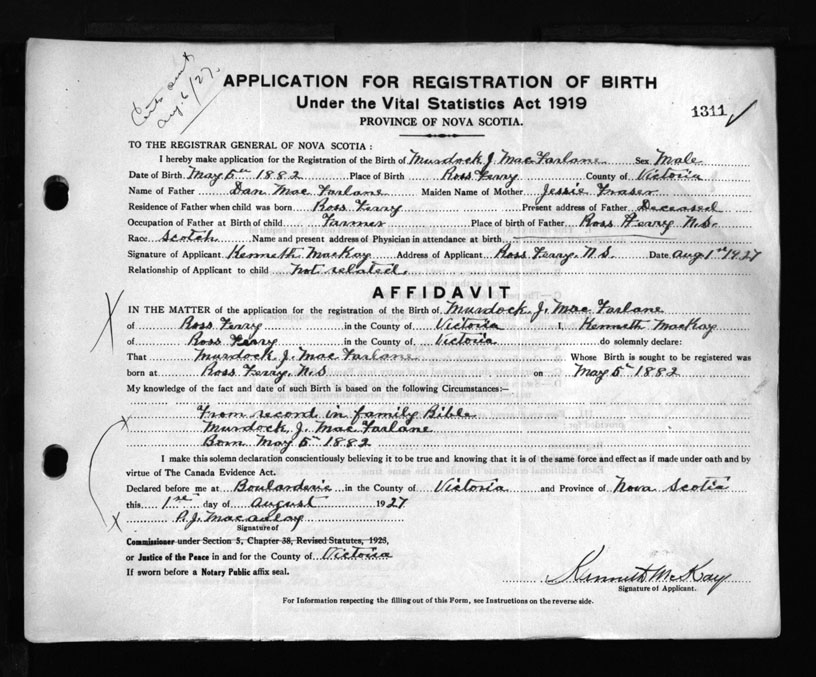 Cert sent
Aug 6/27.
APPLICATION FOR REGISTRATION OF BIRTH
Under the Vital Statistics Act 1919
PROVINCE OF NOVA SCOTIA.
1311
TO THE REGISTRAR GENERAL OF NOVA SCOTIA :
I hereby make application for the Registration of the Birth of Murdock J. Mac Farlane Sex Male
Date of Birth May 5th 1882 Place of Birth Ross Ferry County of Victoria
Name of Father Dan Mac Farlane Maiden Name of Mother Jessie Fraser
Residence of Father when child was born Ross Ferry Present address of Father Deceased
Occupation of Father at Birth of child Farmer Place of birth of Father Ross Ferry N.S.
Race Scotch Name and present address of Physician in attendance at birth
Signature of Applicant Kenneth MacKay Address of Applicant Ross Ferry, N.S. Date Aug 1st 1927
Relationship of Applicant to child not related.
AFFIDAVIT
IN THE MATTER of the application for the registration of the Birth of Murdock J. Mac Farlane
of Ross Ferry in the County of Victoria I, Kenneth MacKay
of Ross Ferry in the County of Victoria do solemnly declare:
That Murdock J. Mac Farlane Whose Birth is sought to be registered was
born at Ross Ferry, N.S on May 5th 1882
My knowledge of the fact and date of such Birth is based on the following Circumstances:—
From record in family Bible.
Murdock J. Mac Farlane
Born May 5th 1882
I make this solemn declaration conscientiously believing it to be true and knowing that it is of the same force and effect as if made under oath and by
virtue of The Canada Evidence Act.
Declared before me at Boularderie in the County of Victoria and Province of Nova Scotia
this 1st day of August 1927
A.J. Macaulay
Signature of
Commissioner under Section 5, Chapter 38, Revised Statutes, 1923,
or Justice of the Peace in and for the County of Victoria
If sworn before a Notary Public affix seal.
Kenneth McKay
Signature of Applicant.
For Information respecting the filling out of this Form, see Instructions on the reverse side.